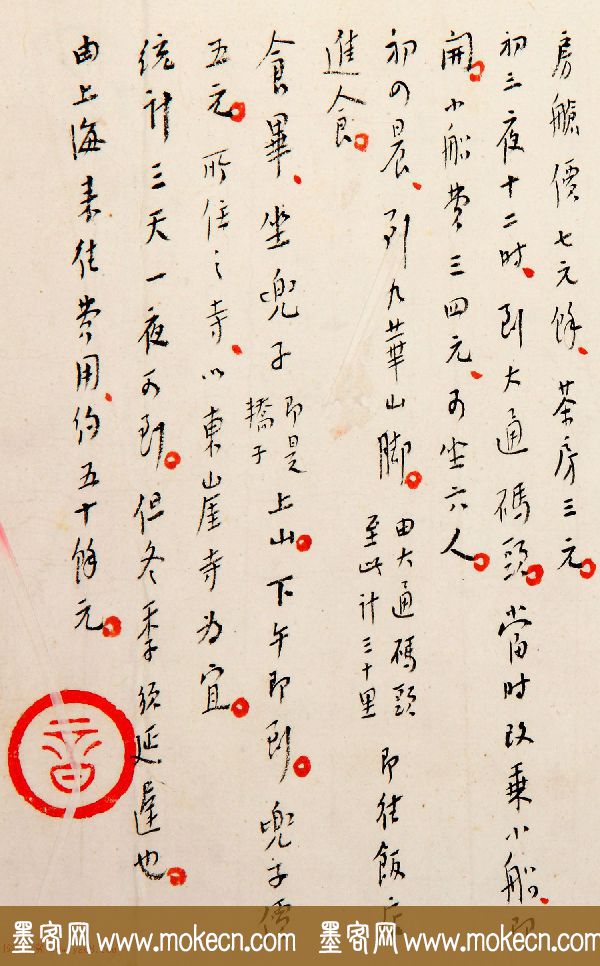 房艙價七元餘、茶房三元。
初三夜十二时、到大通碼頭。當时改乘小船、即
開。小船费三四元、可坐六人。
初四晨、到九華山脚。由大通碼頭至此计三十里 即往飯店
進食。
食畢、坐兜子 即是轎子 上山。下午即到。兜子價
五元。所住之寺、以東山崖寺为宜。
统计三天一夜可到。但冬季须延遲也。
由上海来往费用、约五十餘元。
墨客网 www.mokecn.com 墨客网 www.mokecn.com